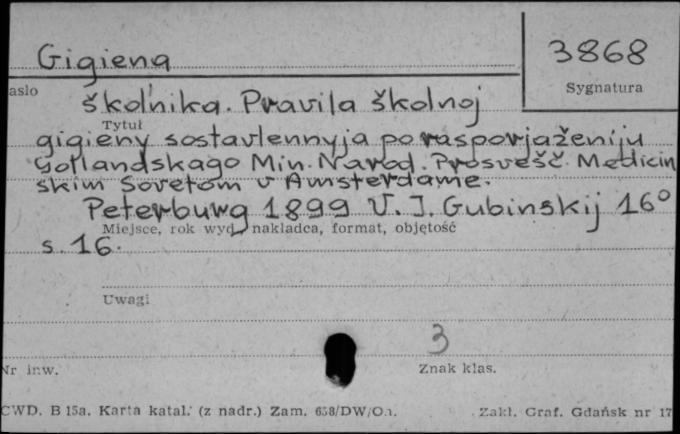 Gigiena
3868
asło
Sygnatura
škol'nika. Pravila školnoj
Tytuł
gigieny sostavlennyja po rasporjaženiju
gollandskago Min. Narod. Prosvešč. Medicin
skim Sovetom v Amsterdame.
Peterburg 1899 V. I. Gubinskij 16°
Miejsce, rok wyd., nakładca, format, objętość
s. 16.
Uwagi
3
Nr inw.
Znak klas.
CWD. B 15a. Karta katal. (z nadr.) Zam. 658/DW/O.
Zakł. Graf. Gdańsk nr 17